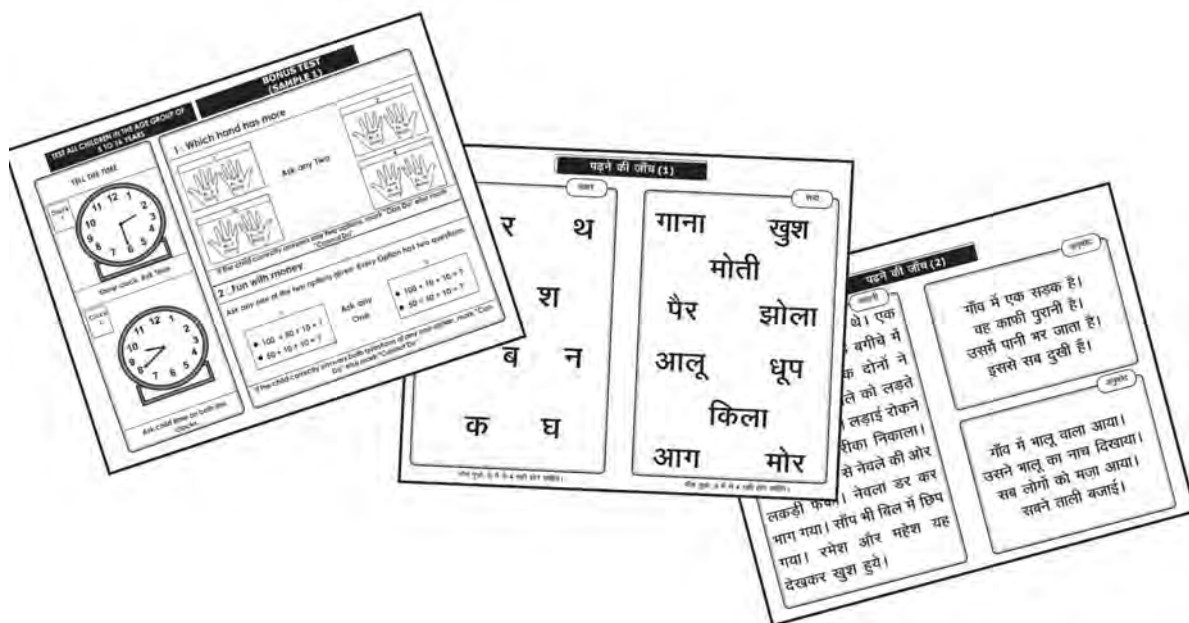 TEST ALL CHILDREN IN THE AGE GROUP OF
5 TO 16 YEARS
TELL THE TIME
Clock
1
12 1 2 3 4 5 6 7 8 9 10 11
Show clock. Ask Time
Clock
2
12 1 2 3 4 5 6 7 8 9 10 11
Ask child time on both the
clocks.
BONUS TEST
(SAMPLE 1)
1. Which hand has more
Ask any Two
If the child correctly answers any two options, mark "Can Do" else mark
"Cannot Do"
2. Fun with money
Ask any one of the two options given. Every Option has two questions.
Ask any
One
If the child correctly answers both questions of any one option, mark "Can
Do" else mark "Cannot Do"
पढ़ने की जाँच (1)
अक्षर
र थ
श
ब न
क घ
शब्द
गाना खुश
मोती
पैर झोला
आलू धूप
किला
आग मोर
पढ़ने की जाँच (2)
कहानी
थे। एक
बगीचे में
दोनों ने
को लड़ते
लड़ाई रोकने
निकाला।
से नेवले की ओर
लकड़ी फेंकी। नेवला डर कर
भाग गया। साँप भी बिल में छिप
गया। रमेश और महेश यह
देखकर खुश हुये।
अनुच्छेद
गाँव में एक सड़क है।
वह काफी पुरानी है।
उसमें पानी भर जाता है।
इससे सब दुखी हैं।
अनुच्छेद
गाँव में भालू वाला आया।
उसने भालू का नाच दिखाया।
सब लोगों को मजा आया।
सबने ताली बजाई।